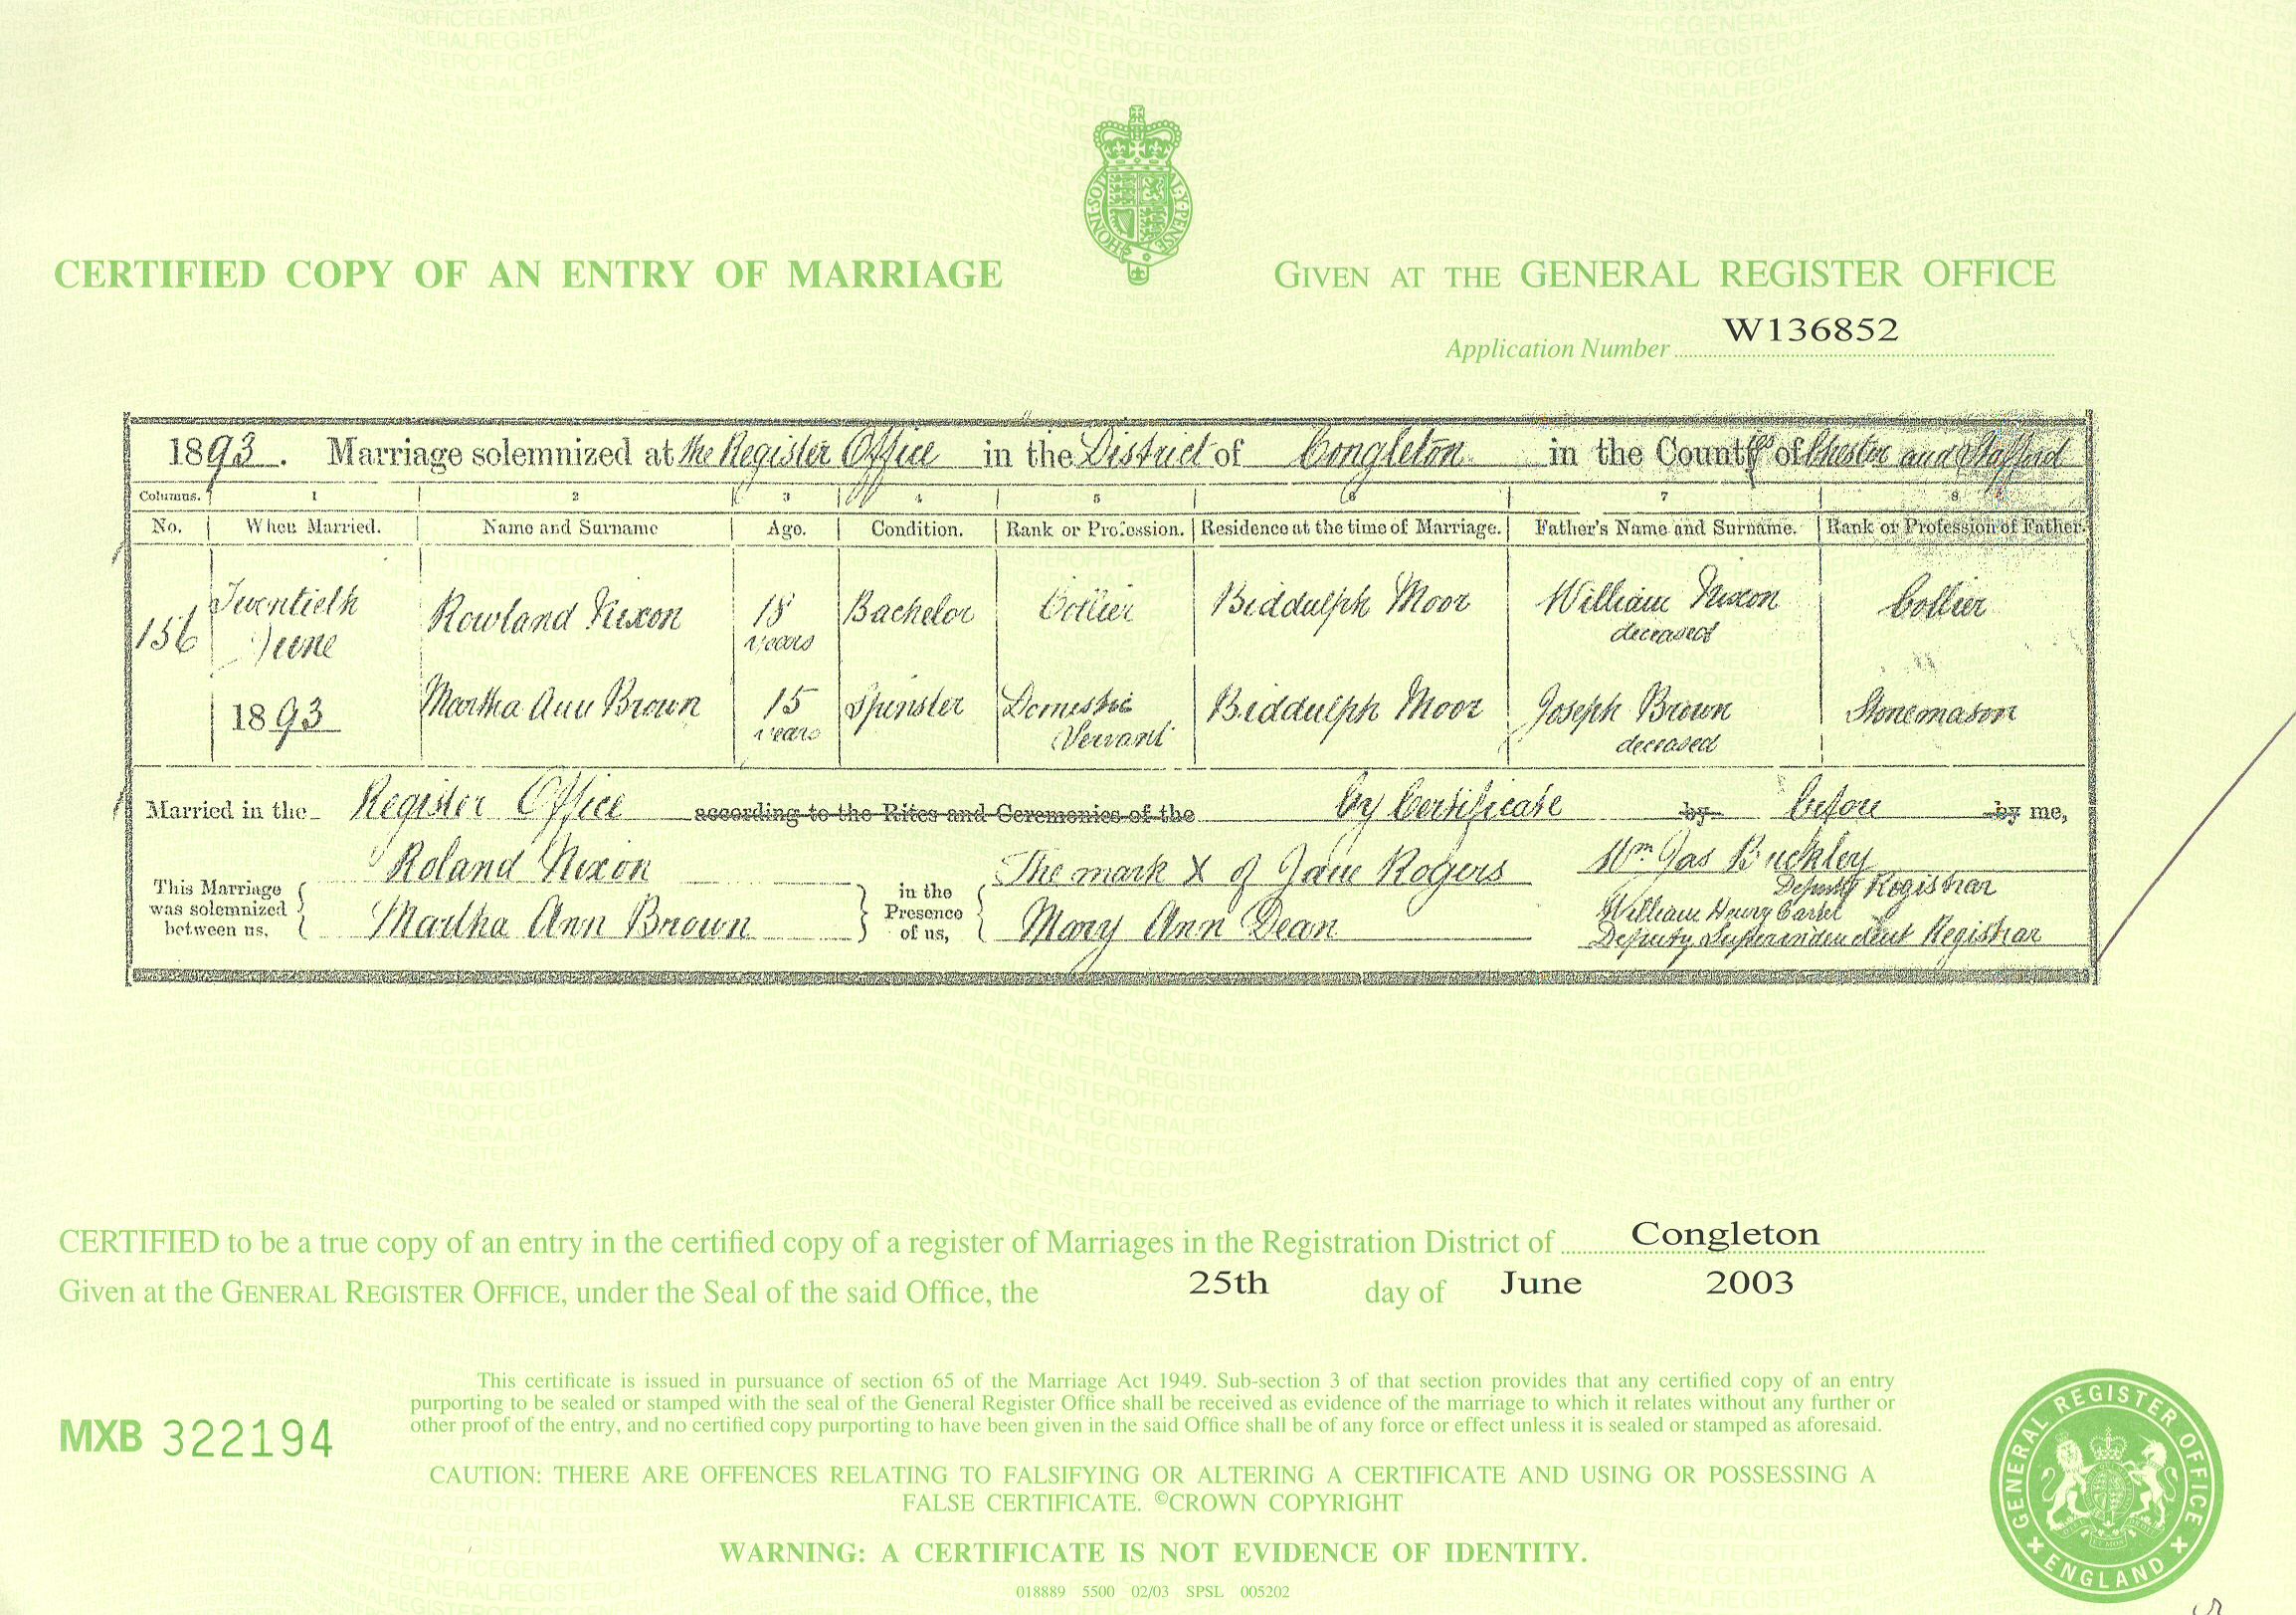 HONI·SOIT·Q AL·Y·PENSE
CERTIFIED COPY OF AN ENTRY OF MARRIAGE
GIVEN AT THE GENERAL REGISTER OFFICE
Application Number W136852
1893. Marriage solemnized at the Register Office in the District of Congleton in the Counties of Chester and Stafford
Columns. 1 2 3 4 5 6 7 8
No. When Married. Name and Surname Age. Condition. Rank or Profession. Residence at the time of Marriage. Father's Name and Surname. Rank or Profession of Father.
156 Twentieth June 1893
Rowland Nixon 18 years Bachelor Collier Biddulph Moor William Nixon deceased Collier
Martha Ann Brown 15 years Spinster Domestic Servant Biddulph Moor Joseph Brown deceased Stonemason
Married in the Register Office according to the Rites and Ceremonies of the by Certificate by before by me,
This Marriage was solemnized between us, Roland Nixon Martha Ann Brown
in the Presence of us, The mark X of Jane Rogers Mary Ann Dean
Wm Jas Buckley
Deputy Registrar
William Henry
Deputy Superintendent Registrar
CERTIFIED to be a true copy of an entry in the certified copy of a register of Marriages in the Registration District of Congleton
Given at the GENERAL REGISTER OFFICE, under the Seal of the said Office, the 25th day of June 2003
This certificate is issued in pursuance of section 65 of the Marriage Act 1949. Sub-section 3 of that section provides that any certified copy of an entry
purporting to be sealed or stamped with the seal of the General Register Office shall be received as evidence of the marriage to which it relates without any further or
other proof of the entry, and no certified copy purporting to have been given in the said Office shall be of any force or effect unless it is sealed or stamped as aforesaid.
MXB 322194
CAUTION: THERE ARE OFFENCES RELATING TO FALSIFYING OR ALTERING A CERTIFICATE AND USING OR POSSESSING A
FALSE CERTIFICATE. ©CROWN COPYRIGHT
WARNING: A CERTIFICATE IS NOT EVIDENCE OF IDENTITY.
018889 5500 02/03 SPSL 005202
GENERAL REGISTER OFFICE
ENGLAND